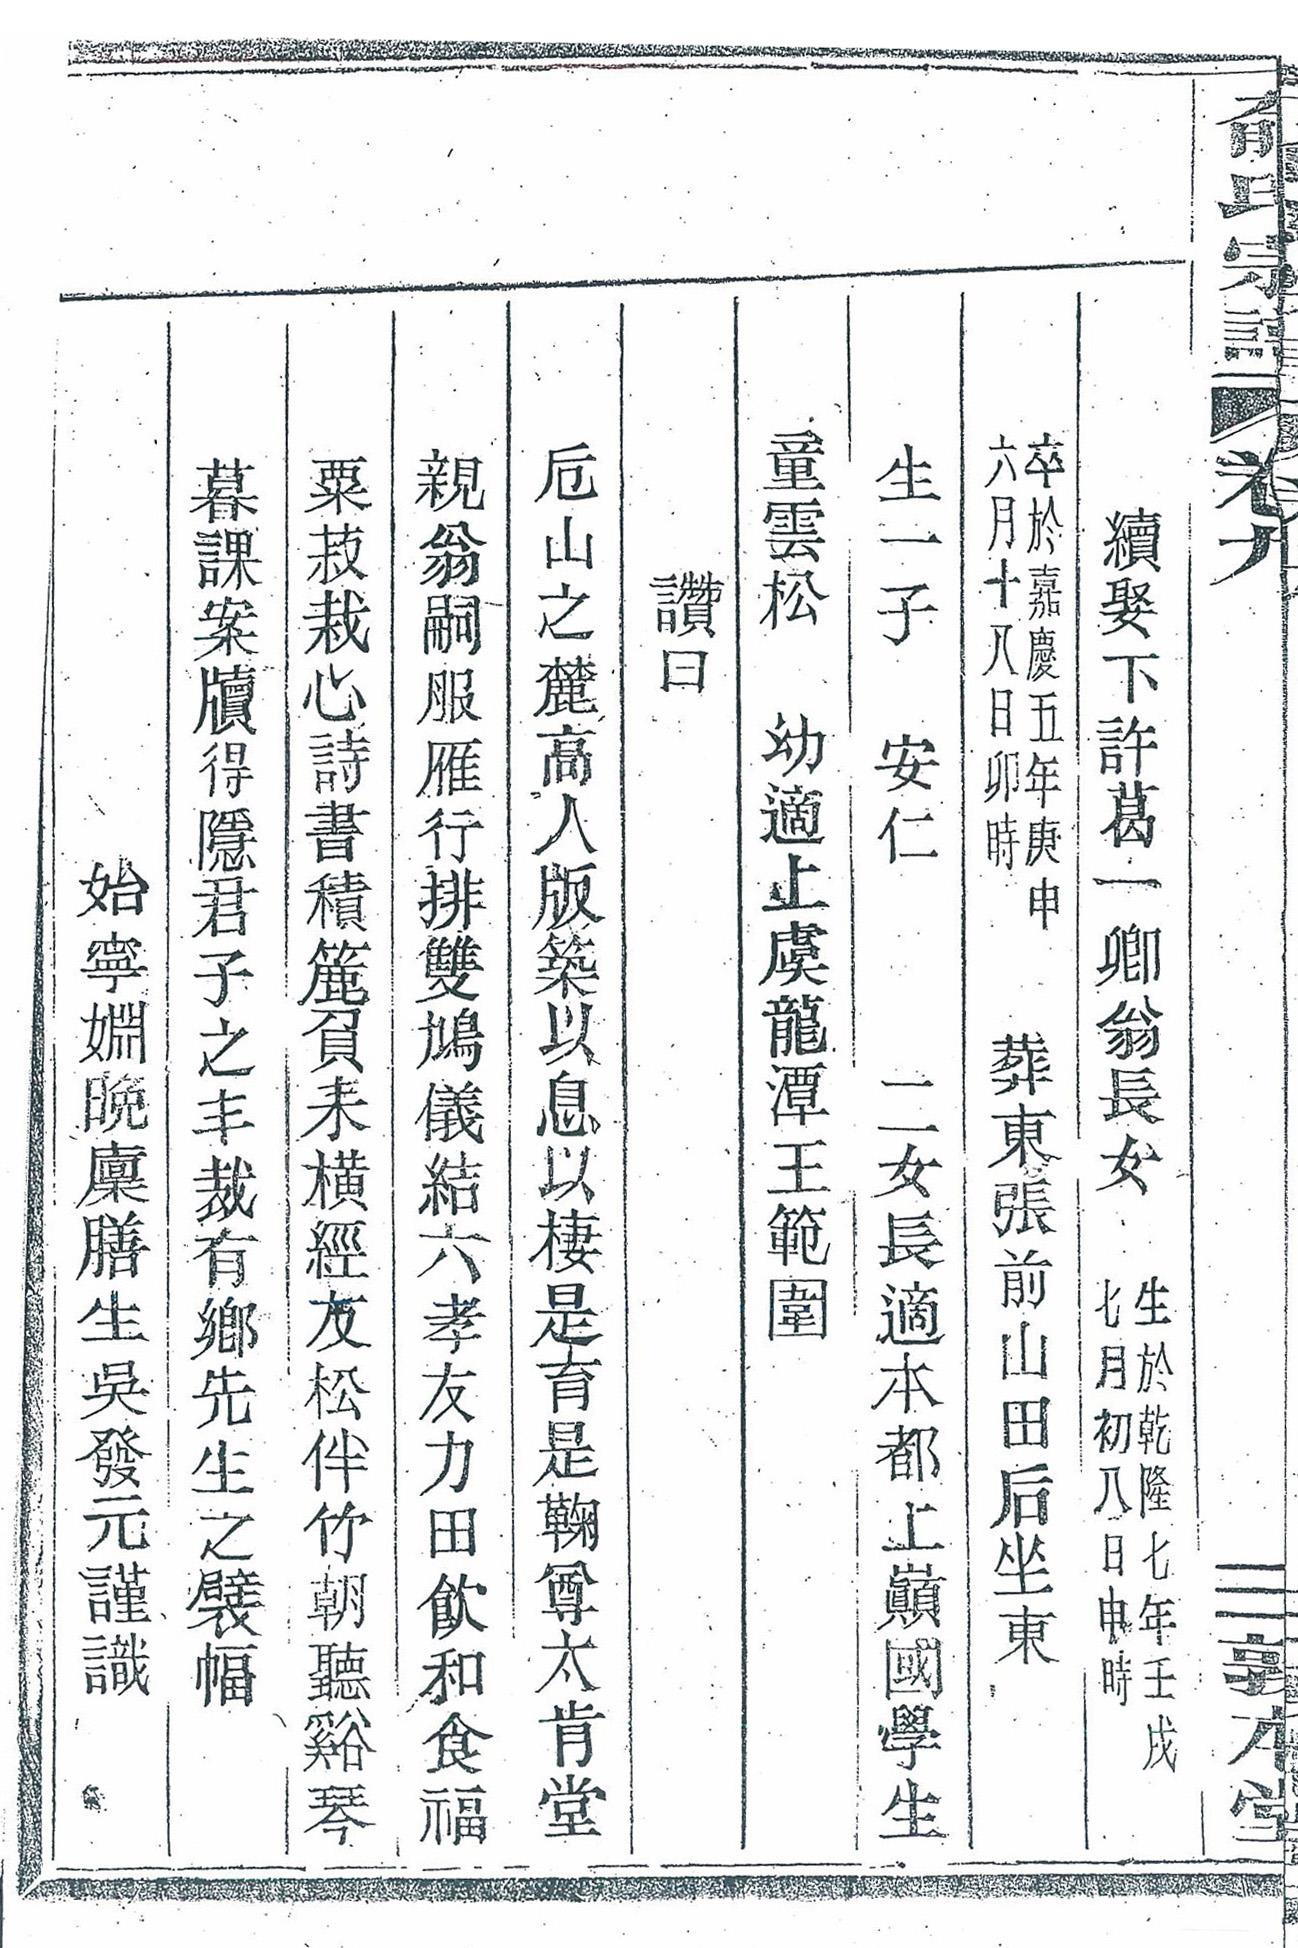 俞氏宗譜
卷九
三
敦本堂
續娶下許葛一卿翁長女 生於乾隆七年壬戌
七月初八日申時
卒於嘉慶五年庚申
六月十八日卯時 葬東張前山田后坐東
生一子 安仁 二女長適本都上巔國學生
童雲松 幼適上虞龍潭王範圍
讚曰
卮山之麓高人版築以息以棲是育是鞠尊太肯堂
親翁嗣服雁行排雙鳩儀結六孝友力田飲和食福
粟菽栽心詩書積簏負耒橫經友松伴竹朝聽谿琴
暮課案牘得隱君子之丰裁有鄉先生之襞幅
始寧婣晚廩膳生吳發元謹識